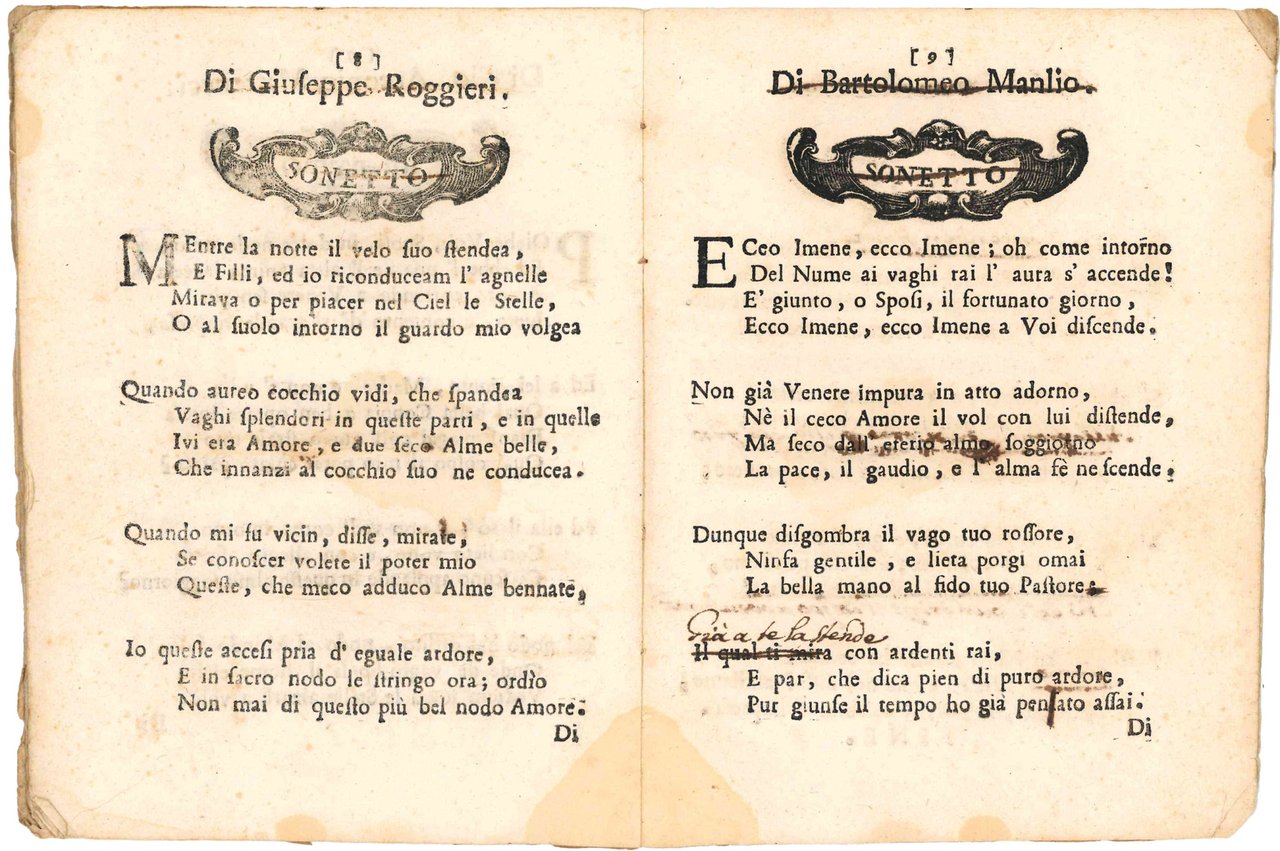 [ 8 ]
Di Giuſeppe Roggieri.
SONETTO
MEntre la notte il velo ſuo ſtendea,
E Filli, ed io riconduceam l' agnelle
Mirava o per piacer nel Ciel le Stelle,
O al ſuolo intorno il guardo mio volgea
Quando aureo cocchio vidi, che ſpandea
Vaghi ſplendori in queſte parti, e in quelle
Ivi era Amore, e due ſeco Alme belle,
Che innanzi al cocchio ſuo ne conducea.
Quando mi fu vicin, diſſe, mirate,
Se conoſcer volete il poter mio
Queſte, che meco adduco Alme bennate,
Io queſte acceſi pria d' eguale ardore,
E in ſacro nodo le ſtringo ora; ordìo
Non mai di queſto più bel nodo Amore.
Di
[ 9 ]
Di Bartolomeo Manlio.
SONETTO
ECco Imene, ecco Imene; oh come intorno
Del Nume ai vaghi rai l' aura s' accende!
E' giunto, o Spoſi, il fortunato giorno,
Ecco Imene, ecco Imene a Voi diſcende.
Non già Venere impura in atto adorno,
Nè il ceco Amore il vol con lui diſtende,
Ma ſeco dall' eterio almo ſoggiorno
La pace, il gaudio, e l' alma fè ne ſcende.
Dunque diſgombra il vago tuo roſſore,
Ninfa gentile, e lieta porgi omai
La bella mano al fido tuo Paſtore;
Già a te la stende
Il qual ti mira con ardenti rai,
E par, che dica pien di puro ardore,
Pur giunſe il tempo ho già penſato aſſai.
Di